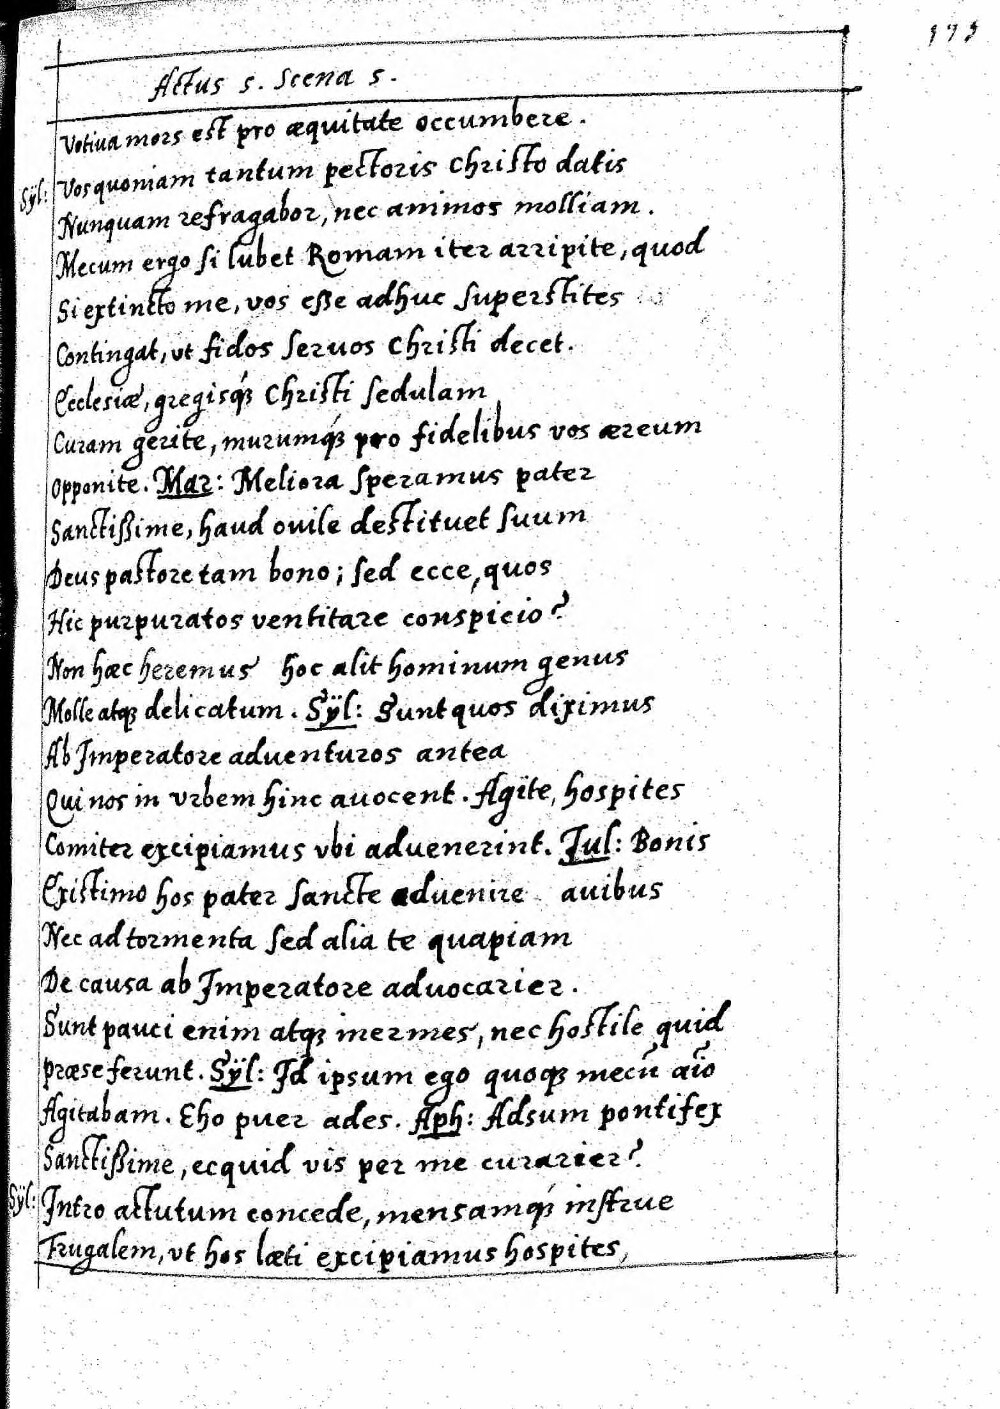 173
Actus 5. Scena 5.
Votiua mors est pro æquitate occumbere.
Sÿl: Vos quoniam tantum pectoris Christo datis
Nunquam refragabor, nec animos molliam.
Mecum ergo si lubet Romam iter arripite, quod
Si extincto me, vos esse adhuc superstites
Contingat, vt fidos seruos Christi decet.
Ecclesiæ, gregisq́ꝫ Christi sedulam
Curam gerite, murumq́ꝫ pro fidelibus vos æreum
Opponite. Mar: Meliora speramus pater
Sanctißime, haud ouile destituet suum
Deus pastore tam bono; sed ecce, quos
Hic purpuratos ventitare conspicio?
Non hæc heremus hoc alit hominum genus
Molle atqꝫ delicatum. Sÿl: Sunt quos diximus
Ab Imperatore aduenturos antea
Qui nos in vrbem hinc auocent. Agite, hospites
Comiter excipiamus vbi aduenerint. Jul: Bonis
Existimo hos pater sancte aduenire auibus
Nec ad tormenta sed alia te quapiam
De causa ab Imperatore aduocarier.
Sunt pauci enim atqꝫ inermes, nec hostile quid
præse ferunt. Sÿl: Id ipsum ego quoqꝫ mecū aīo
Agitabam. Eho puer ades. Aph: Adsum pontifex
Sanctißime, ecquid vis per me curarier?
Sÿl: Intro actutum concede, mensamq́ꝫ instrue
Frugalem, vt hos læti excipiamus hospites,